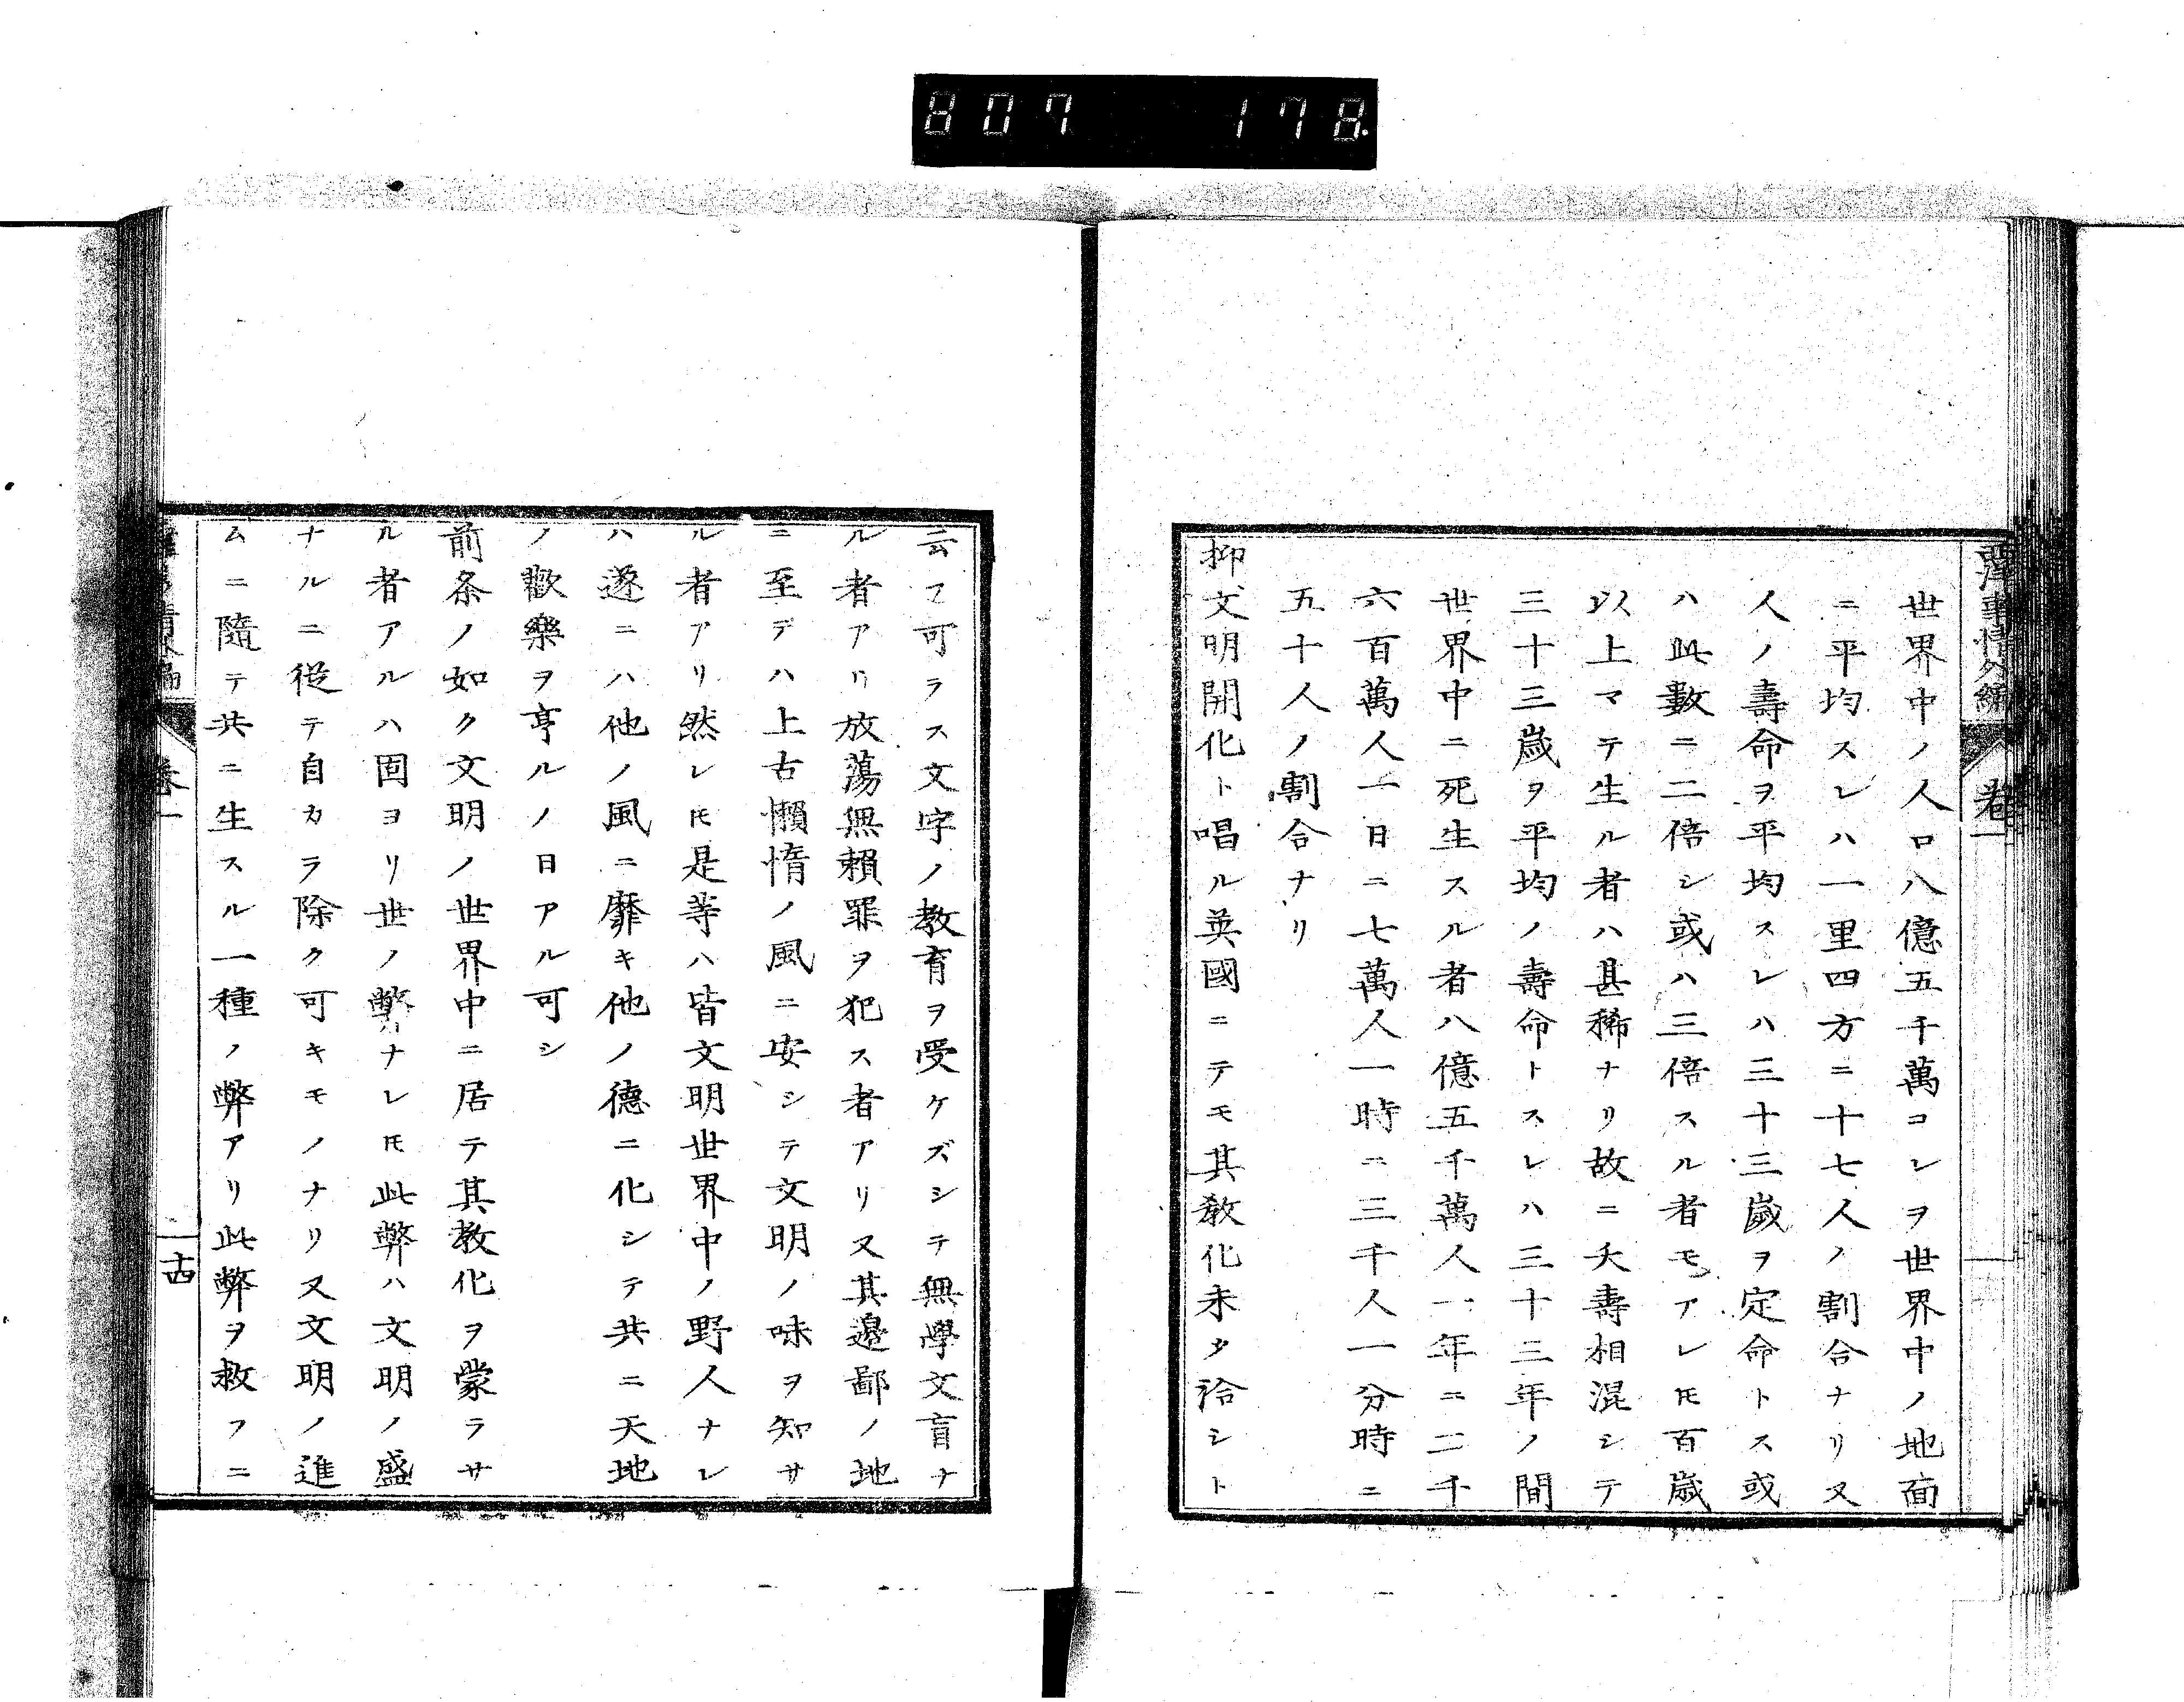 807 178.
西洋事情外編 卷一
世界中ノ人口八億五千萬コレヲ世界中ノ地面
ニ平均スレハ一里四方ニ十七人ノ割合ナリ又
人ノ壽命ヲ平均スレハ三十三歲ヲ定命トス或
ハ此數ニ二倍シ或ハ三倍スル者モアレ𪜈百歲
以上マテ生ル者ハ甚稀ナリ故ニ夭壽相混シテ
三十三歲ヲ平均ノ壽命トスレハ三十三年ノ間
世界中ニ死生スル者八億五千萬人一年ニ二千
六百萬人一日ニ七萬人一時ニ三千人一分時ニ
五十人ノ割合ナリ
抑文明開化ト唱ル英國ニテモ其敎化未タ洽シト
云フ可ラス文字ノ教育ヲ受ケズシテ無學文盲ナ
ル者アリ放蕩無賴罪ヲ犯ス者アリ又其邊鄙ノ地
ニ至デハ上古懶惰ノ風ニ安シテ文明ノ味ヲ知サ
ル者アリ然レ𪜈是等ハ皆文明世界中ノ野人ナレ
ハ遂ニハ他ノ風ニ靡キ他ノ德ニ化シテ共ニ天地
ノ歡樂ヲ享ルノ日アル可シ
前条ノ如ク文明ノ世界中ニ居テ其教化ヲ蒙ラサ
ル者アルハ固ヨリ世ノ弊ナレ𪜈此弊ハ文明ノ盛
ナルニ從テ自カラ除ク可キモノナリ又文明ノ進
ムニ隨テ共ニ生スル一種ノ弊アリ此弊ヲ救フニ
事情外編 卷一 十四